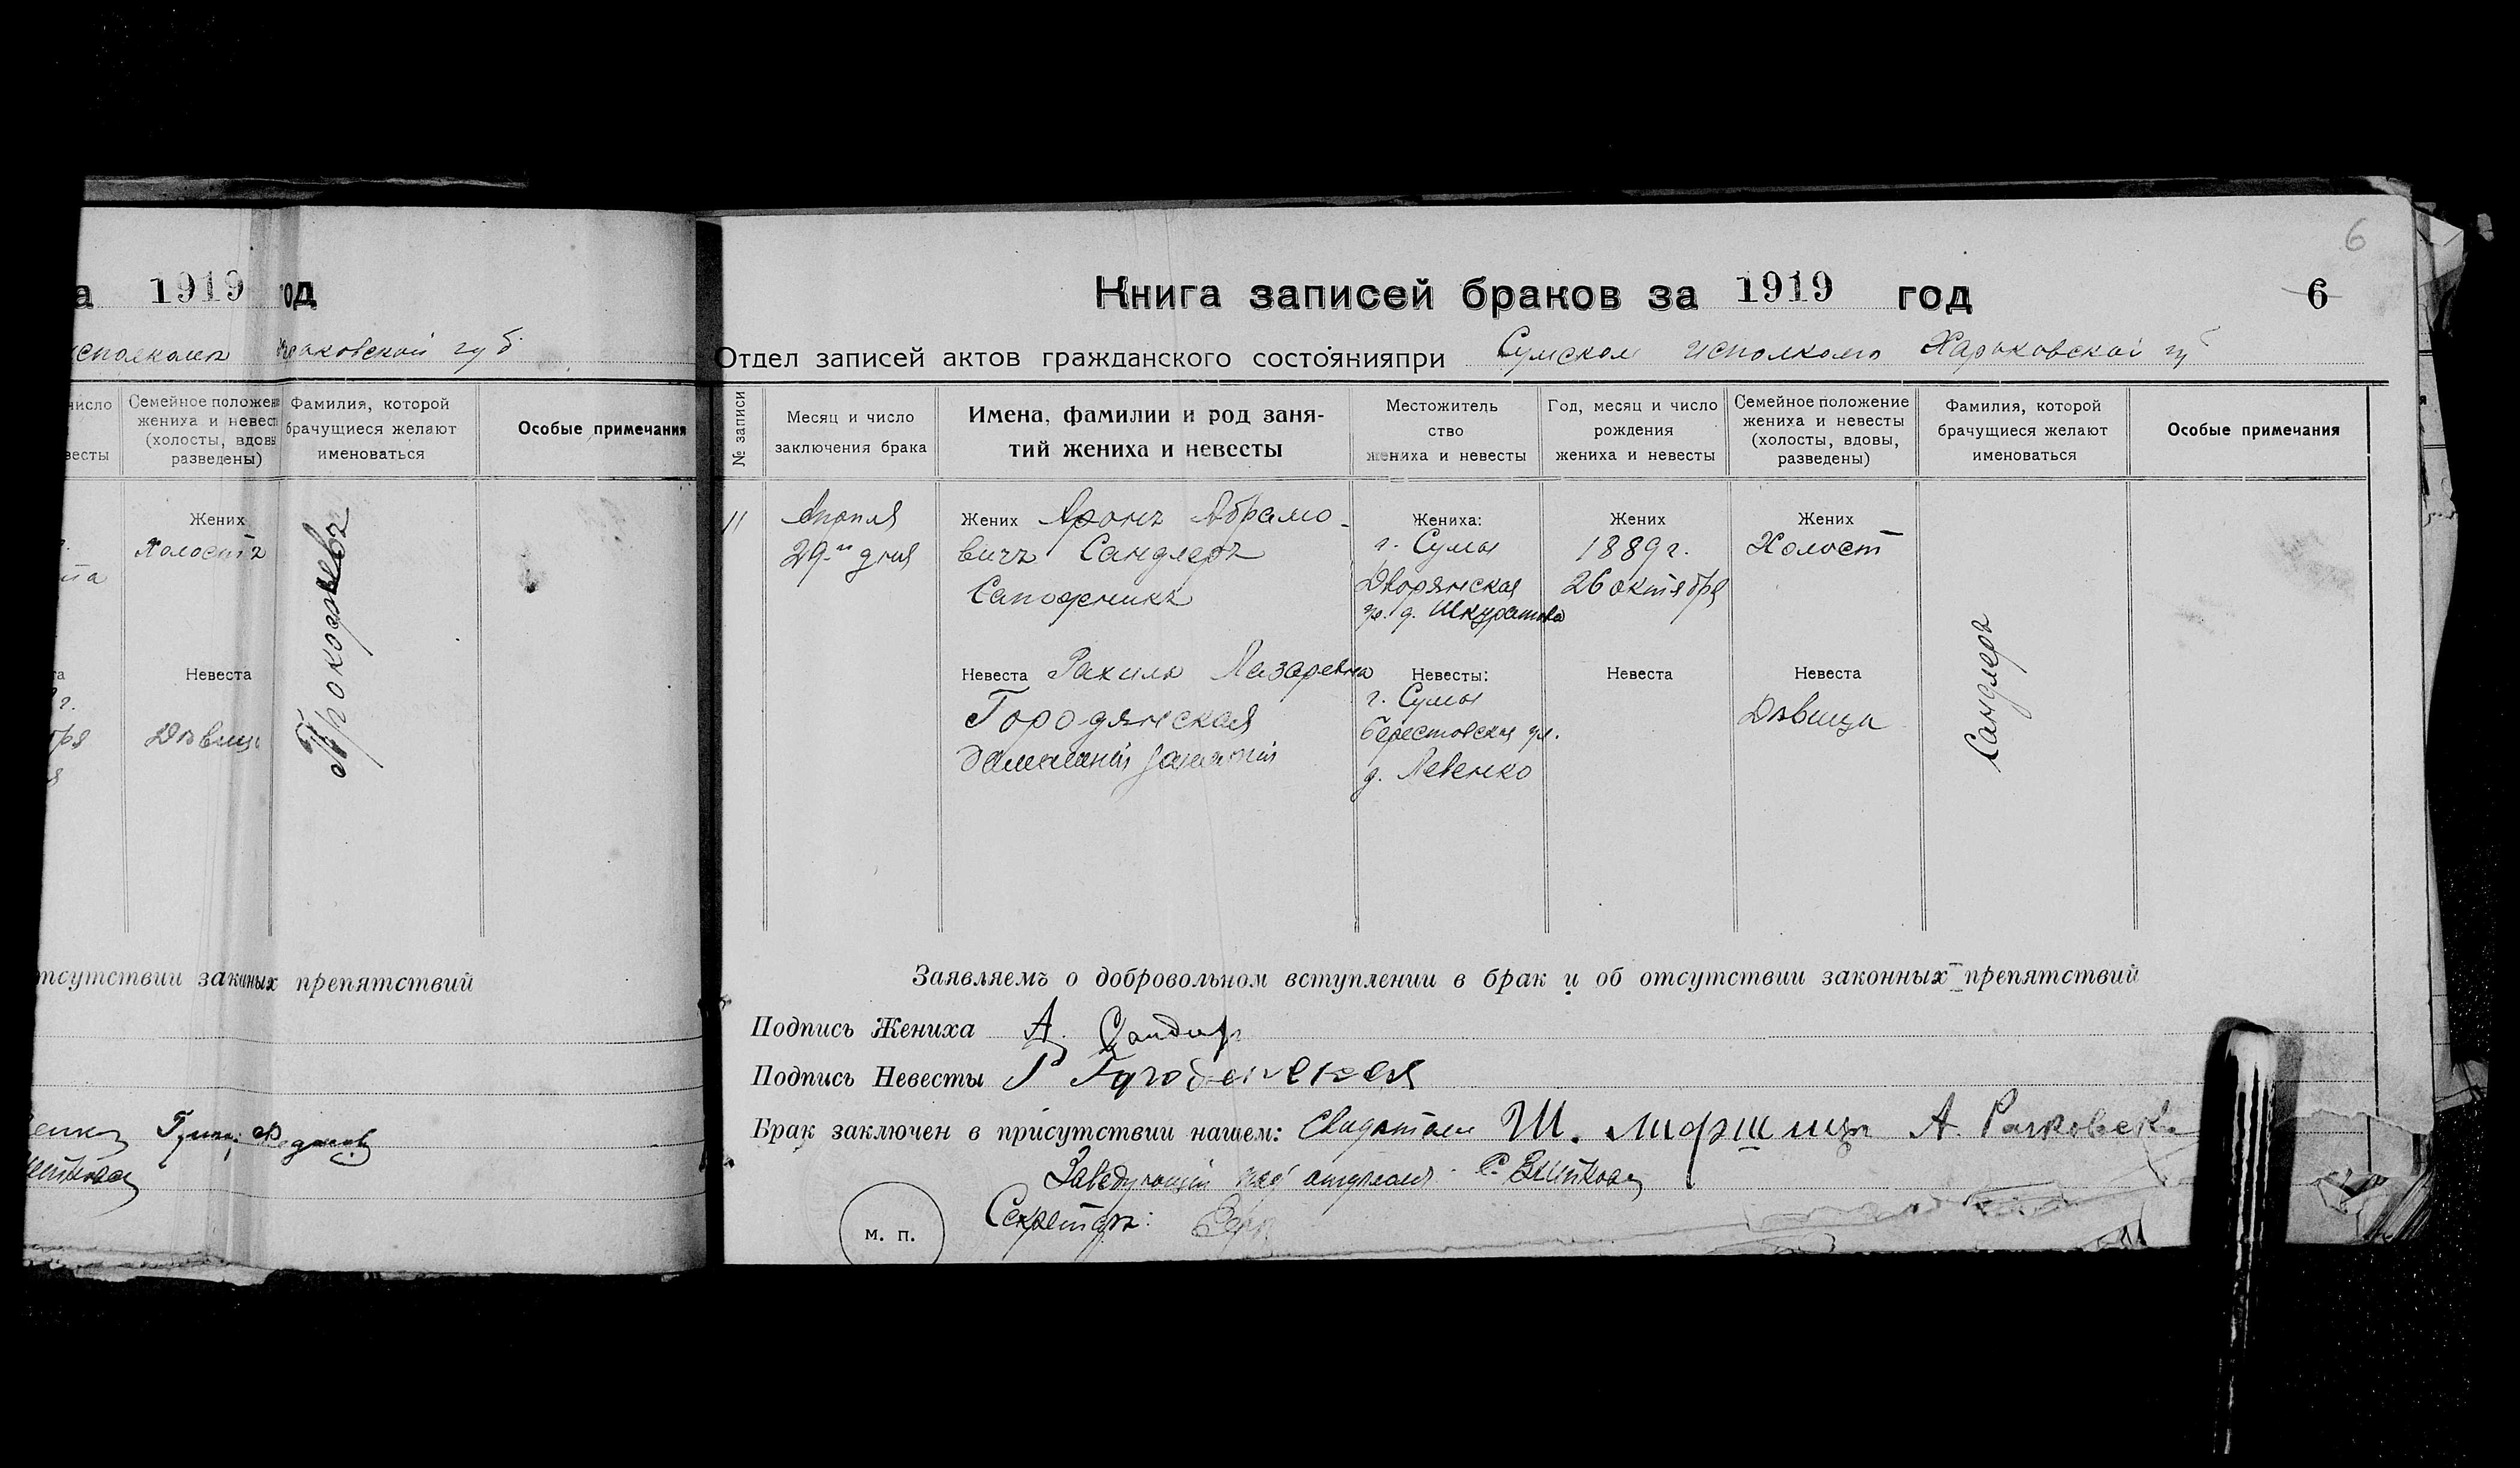 а 1919 год
исполкоме Харьковской губ.
число
весты
Семейное положен
жениха и невест
(холосты, вдовы
разведены)
Фамилия, которой
брачущиеся желают
именоваться
Особые примечания
Жених
Холостъ
Невеста
Дѣвица
Прокофьевъ
отсутствии законных препятствий
6
Книга записей браков за 1919 год
6
Отдел записей актов гражданского состоянияпри Сумском исполкоме Харьковской губ
№ записи
Месяц и число
заключения брака
Имена, фамилии и род заня-
тий жениха и невесты
Местожитель
ство
жениха и невесты
Год, месяц и число
рождения
жениха и невесты
Семейное положение
жениха и невесты
(холосты, вдовы,
разведены)
Фамилия, которой
брачущиеся желают
именоваться
Особые примечания
11
Апреля
29-го дня
Жених Аронъ Абрамо-
вичъ Сандлеръ
Сапожникъ
Жениха:
г. Сумы
Дворянская
ул. д. Шкуратова
Жених
1889 г.
26 октября
Жених
Холост
Невеста Рахиль Лазаревна
Городянская
домашний занятий
Невесты:
г. Сумы
Берестовская ул.
д. Левенко
Невеста
Невеста
Дѣвица
Сандлеръ
Заявляемъ о добровольном вступлении в брак и об отсутствии законных препятствий
Подпись Жениха А. Сандлер
Подпись Невесты Р Городенская
Брак заключен в присутствии нашем: Свидетели Ш. Лифшицъ А.
Заведующий отделом
Секретарь:
м. п.